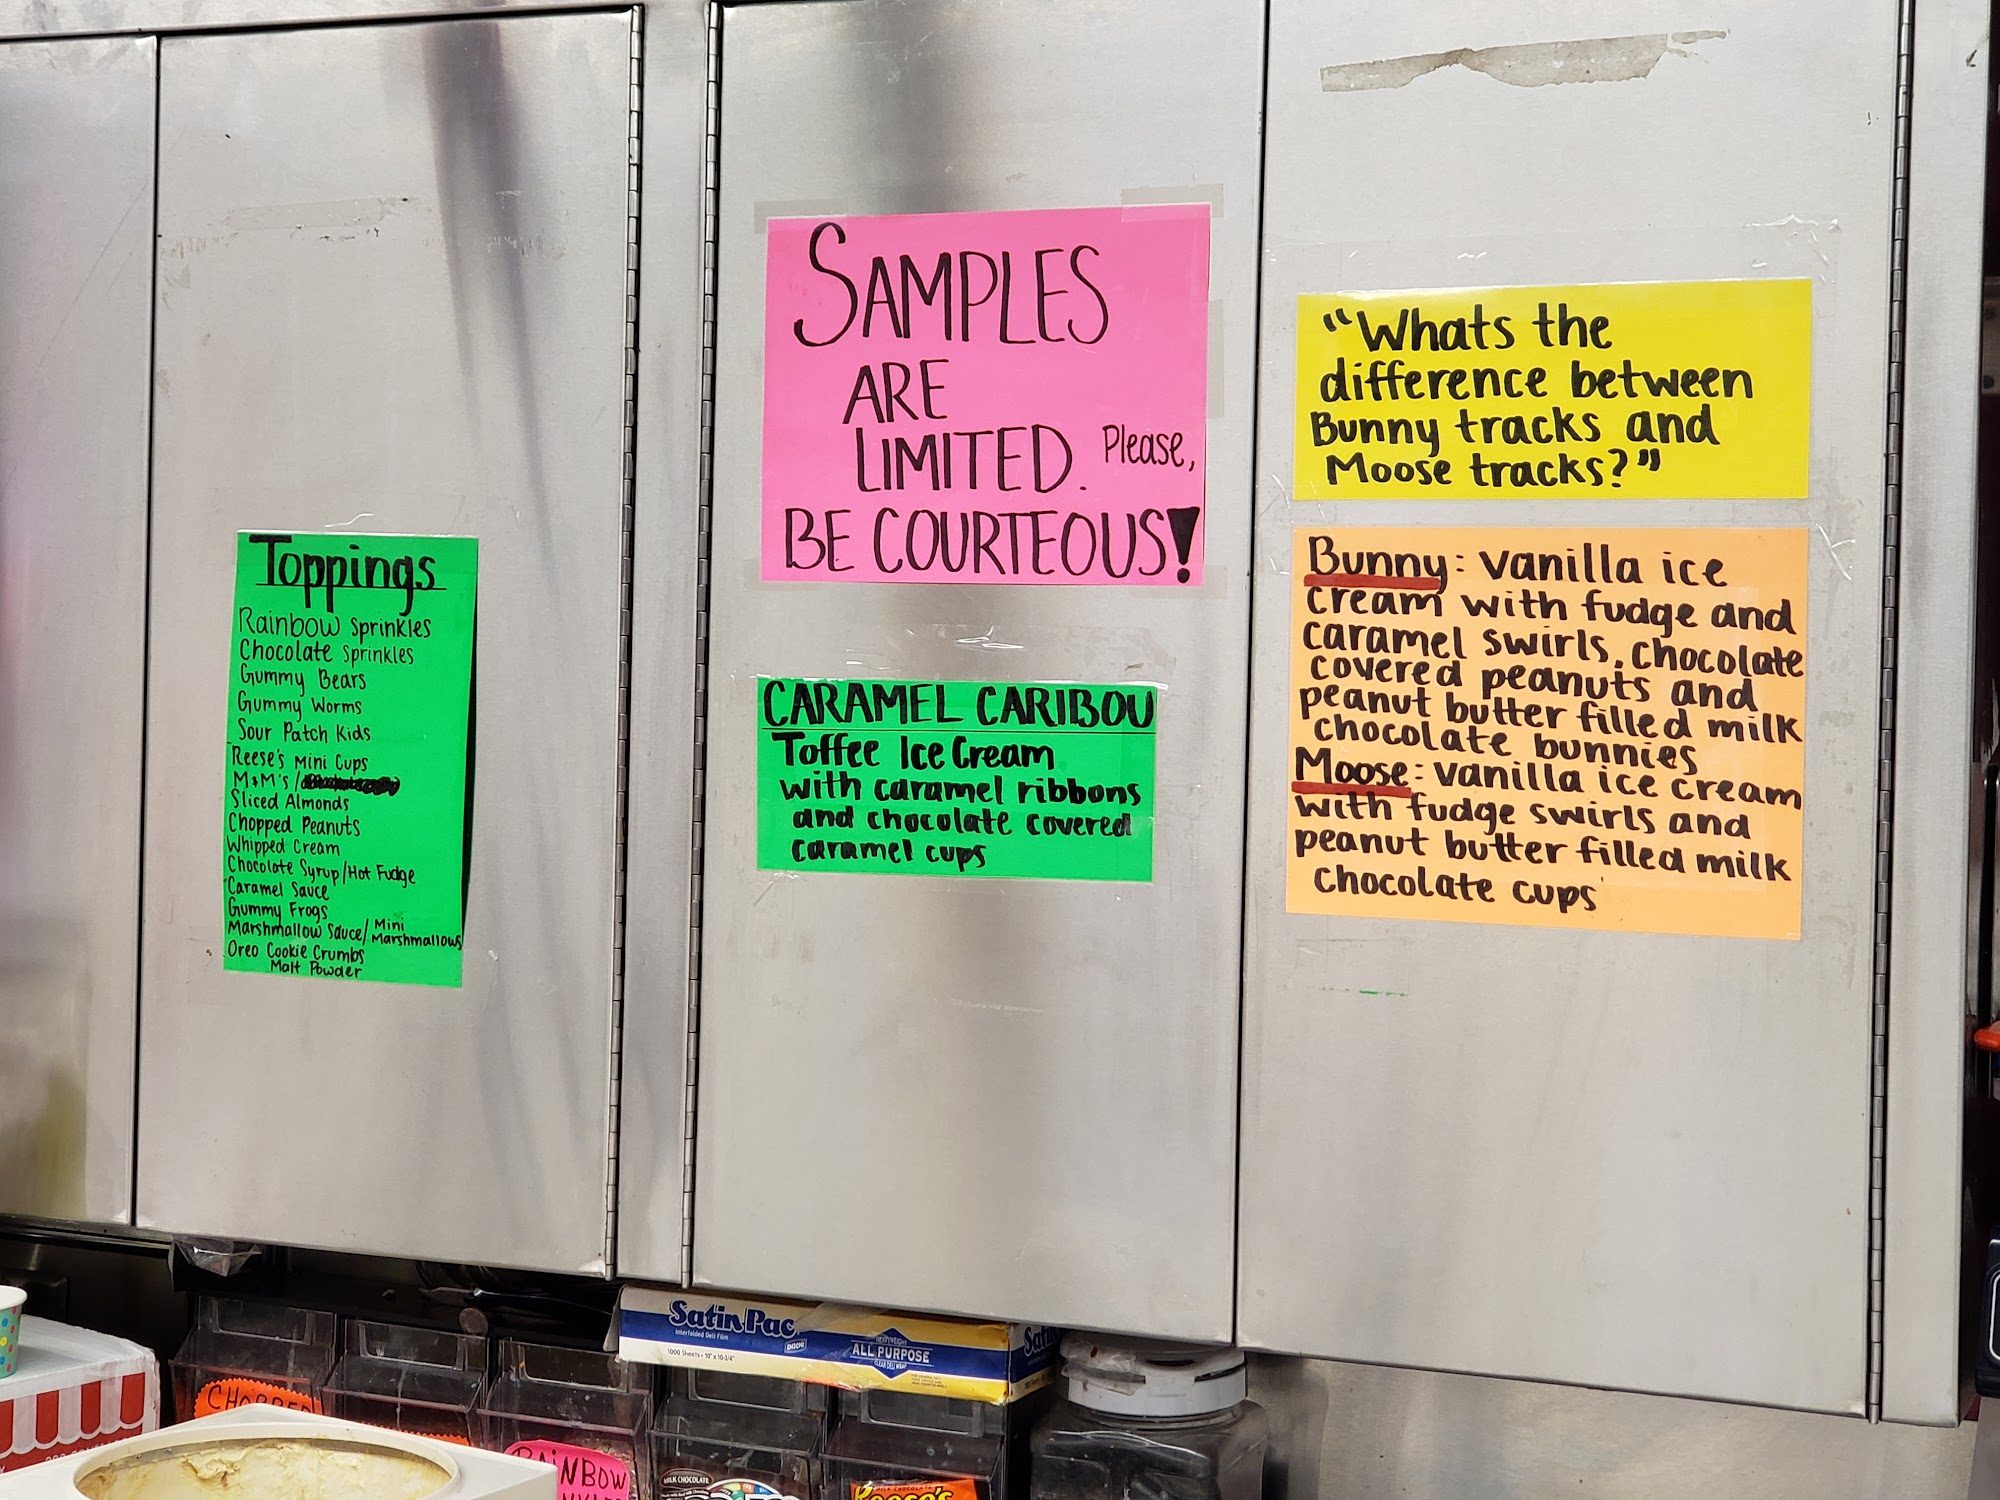 Toppings
Rainbow Sprinkles
Chocolate Sprinkles
Gummy Bears
Gummy Worms
Sour Patch Kids
Reese's Mini Cups
M&M's /
Sliced Almonds
Chopped Peanuts
Whipped Cream
Chocolate Syrup/Hot Fudge
Caramel Sauce
Gummy Frogs
Marshmallow Sauce/ Mini Marshmallows
Oreo Cookie Crumbs
Malt Powder
SAMPLES
ARE
LIMITED. Please,
BE COURTEOUS!
CARAMEL CARIBOU
Toffee Ice Cream
with caramel ribbons
and chocolate covered
caramel cups
"Whats the
difference between
Bunny tracks and
Moose tracks?"
Bunny: vanilla ice
cream with fudge and
caramel swirls, chocolate
covered peanuts and
peanut butter filled milk
chocolate bunnies
Moose: vanilla ice cream
with fudge swirls and
peanut butter filled milk
chocolate cups
Satin Pac
Interfolded Deli Film
1000 Sheets • 10" x 10-3/4"
HEAVYWEIGHT
ALL PURPOSE
CHOPPED
RAINBOW
MILK CHOCOLATE
Reese's